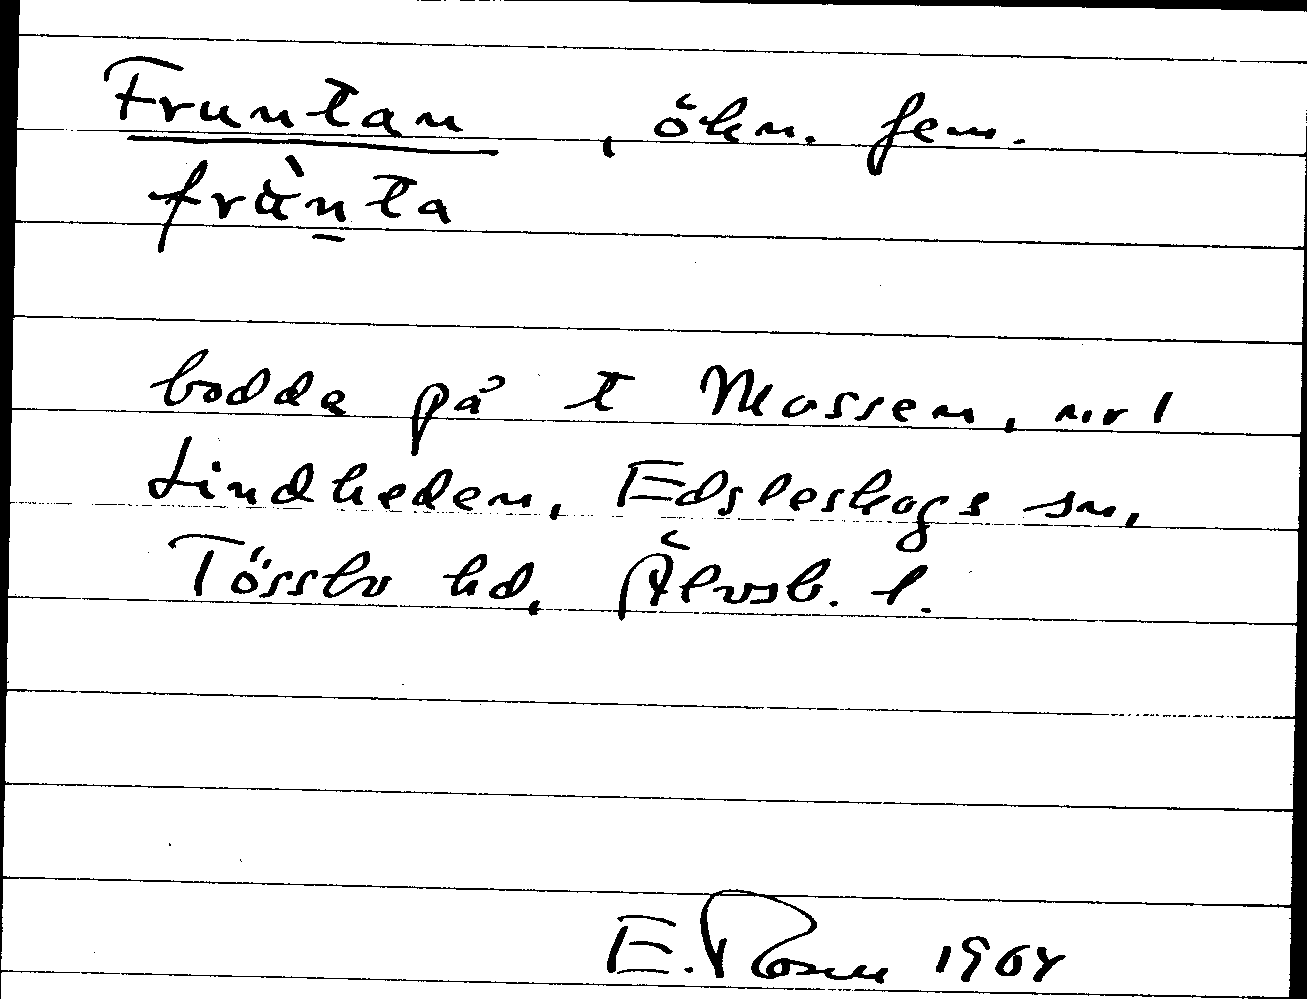 Fruntan, ökn. fem.
frùn̲ta
bodde på t Mossen, nr 1
Lindheden, Edsleskogs sn,
Tössbo hd, Älvsb. l.
E. Rosen 1964